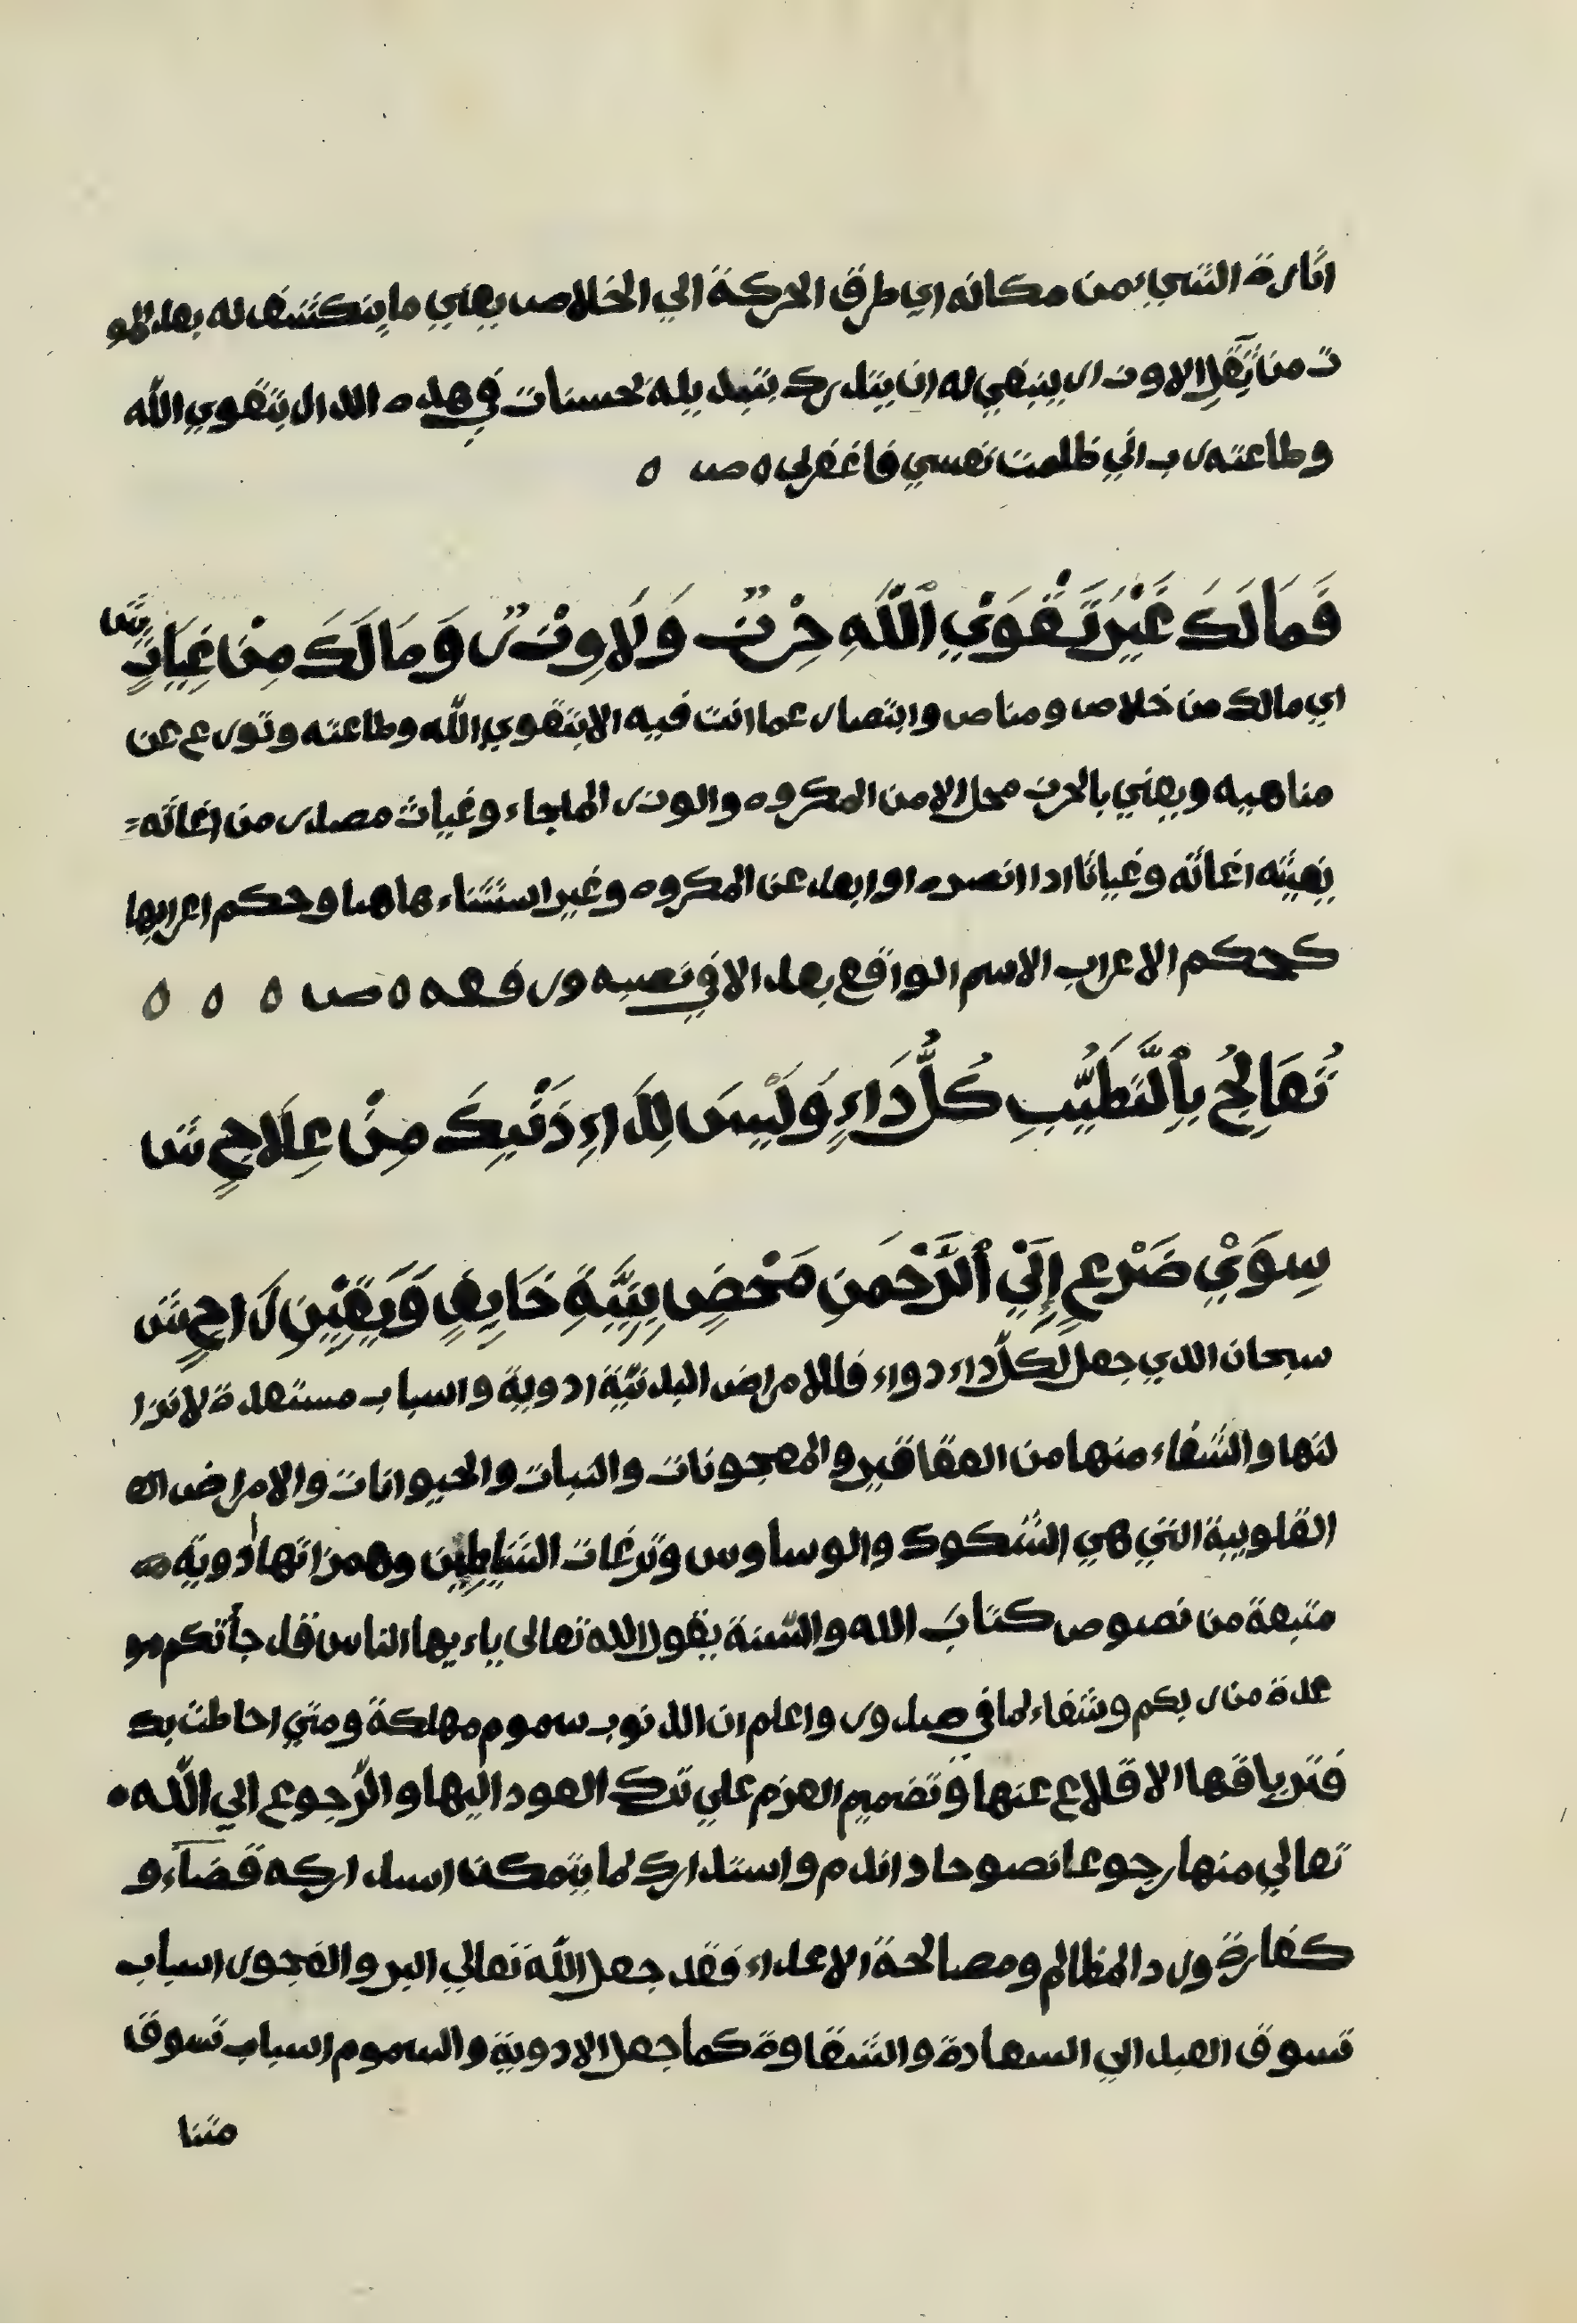 اثارة الشيء من مكانه اي طرق الحركة الي الخلاص يعني ما ينكشف له بعد المو
ت من ثقل الاوزار ينبغي له ان يتدرك بتبديله بحسنات في هذه الدار بتقوي الله
وطاعته رب اني ظلمت نفسي فاغفرلي ه ص ه
فَمَا لَكَ غَيْرَ تَقْوَي ٱللَّهِ حِرْزٌ وَلَا وِزْرٌ وَمَا لَكَ مِنْ غِيَاثٍ ش
اي مالك من خلاص ومناص وانتصار عما انت فيه الا بتقوي الله وطاعته وتورع عن
مناهيه ويعني بالحرز محل الامن المكروه والوزر الملجاء وغياث مصدر من اغاثه
يغيثه اغاثة وغياثا اذا انصره او ابعد عن المكروه وغير استثناء هاهنا وحكم اعرابها
كحكم الاعراب الاسم الواقع بعد الا في نصبه ورفعه ه ص ه ه ه
تُعَالِجُ بِٱلتَّطَبُّبِ كُلَّ دَاءٍ وَلَيْسَ لِدَاءِ ذَنْبِكَ مِنْ عِلَاجٍ ش
سِوَيْ ضَرْعٍ إِلَيْ ٱلرَّحْمَنِ مَحْضٍ بِنِيَّةِ خَايِفٍ وَيَقِيْنِ رَاجٍ ش
سبحان الذي جعل لكل داء دواء فللامراض البدنية ادوية واسباب مستعدة لازا
لتها والشفاء منها من العقاقير والمعجونات والنبات والحيوانات والامراض
القلوبية التي هي الشكوك والوساوس ونزغات الشياطين وهمزاتها ادوية
متبعة من نصوص كتاب الله والسنة يقول الله تعالى ياءيها الناس قد جأتكم مو
عدة من ربكم وشفاء لما في صدور واعلم ان الذنوب سموم مهلكة ومتي احاطت بك
فترياقها الاقلاع عنها وتضميم العزم علي ترك العود اليها والرجوع الي الله
تعالي منها رجوعا نصوحا ذا ندم واستدارك لما يتمكن استدراكه قضاء و
كفارة ورد المظالم ومصالحة الاعداء فقد جعل الله تعالي البر والفجور اسباب
تسوق العبد الي السعادة والشقاوة كما جعل الادوية والسموم اسباب تسوق
متنا